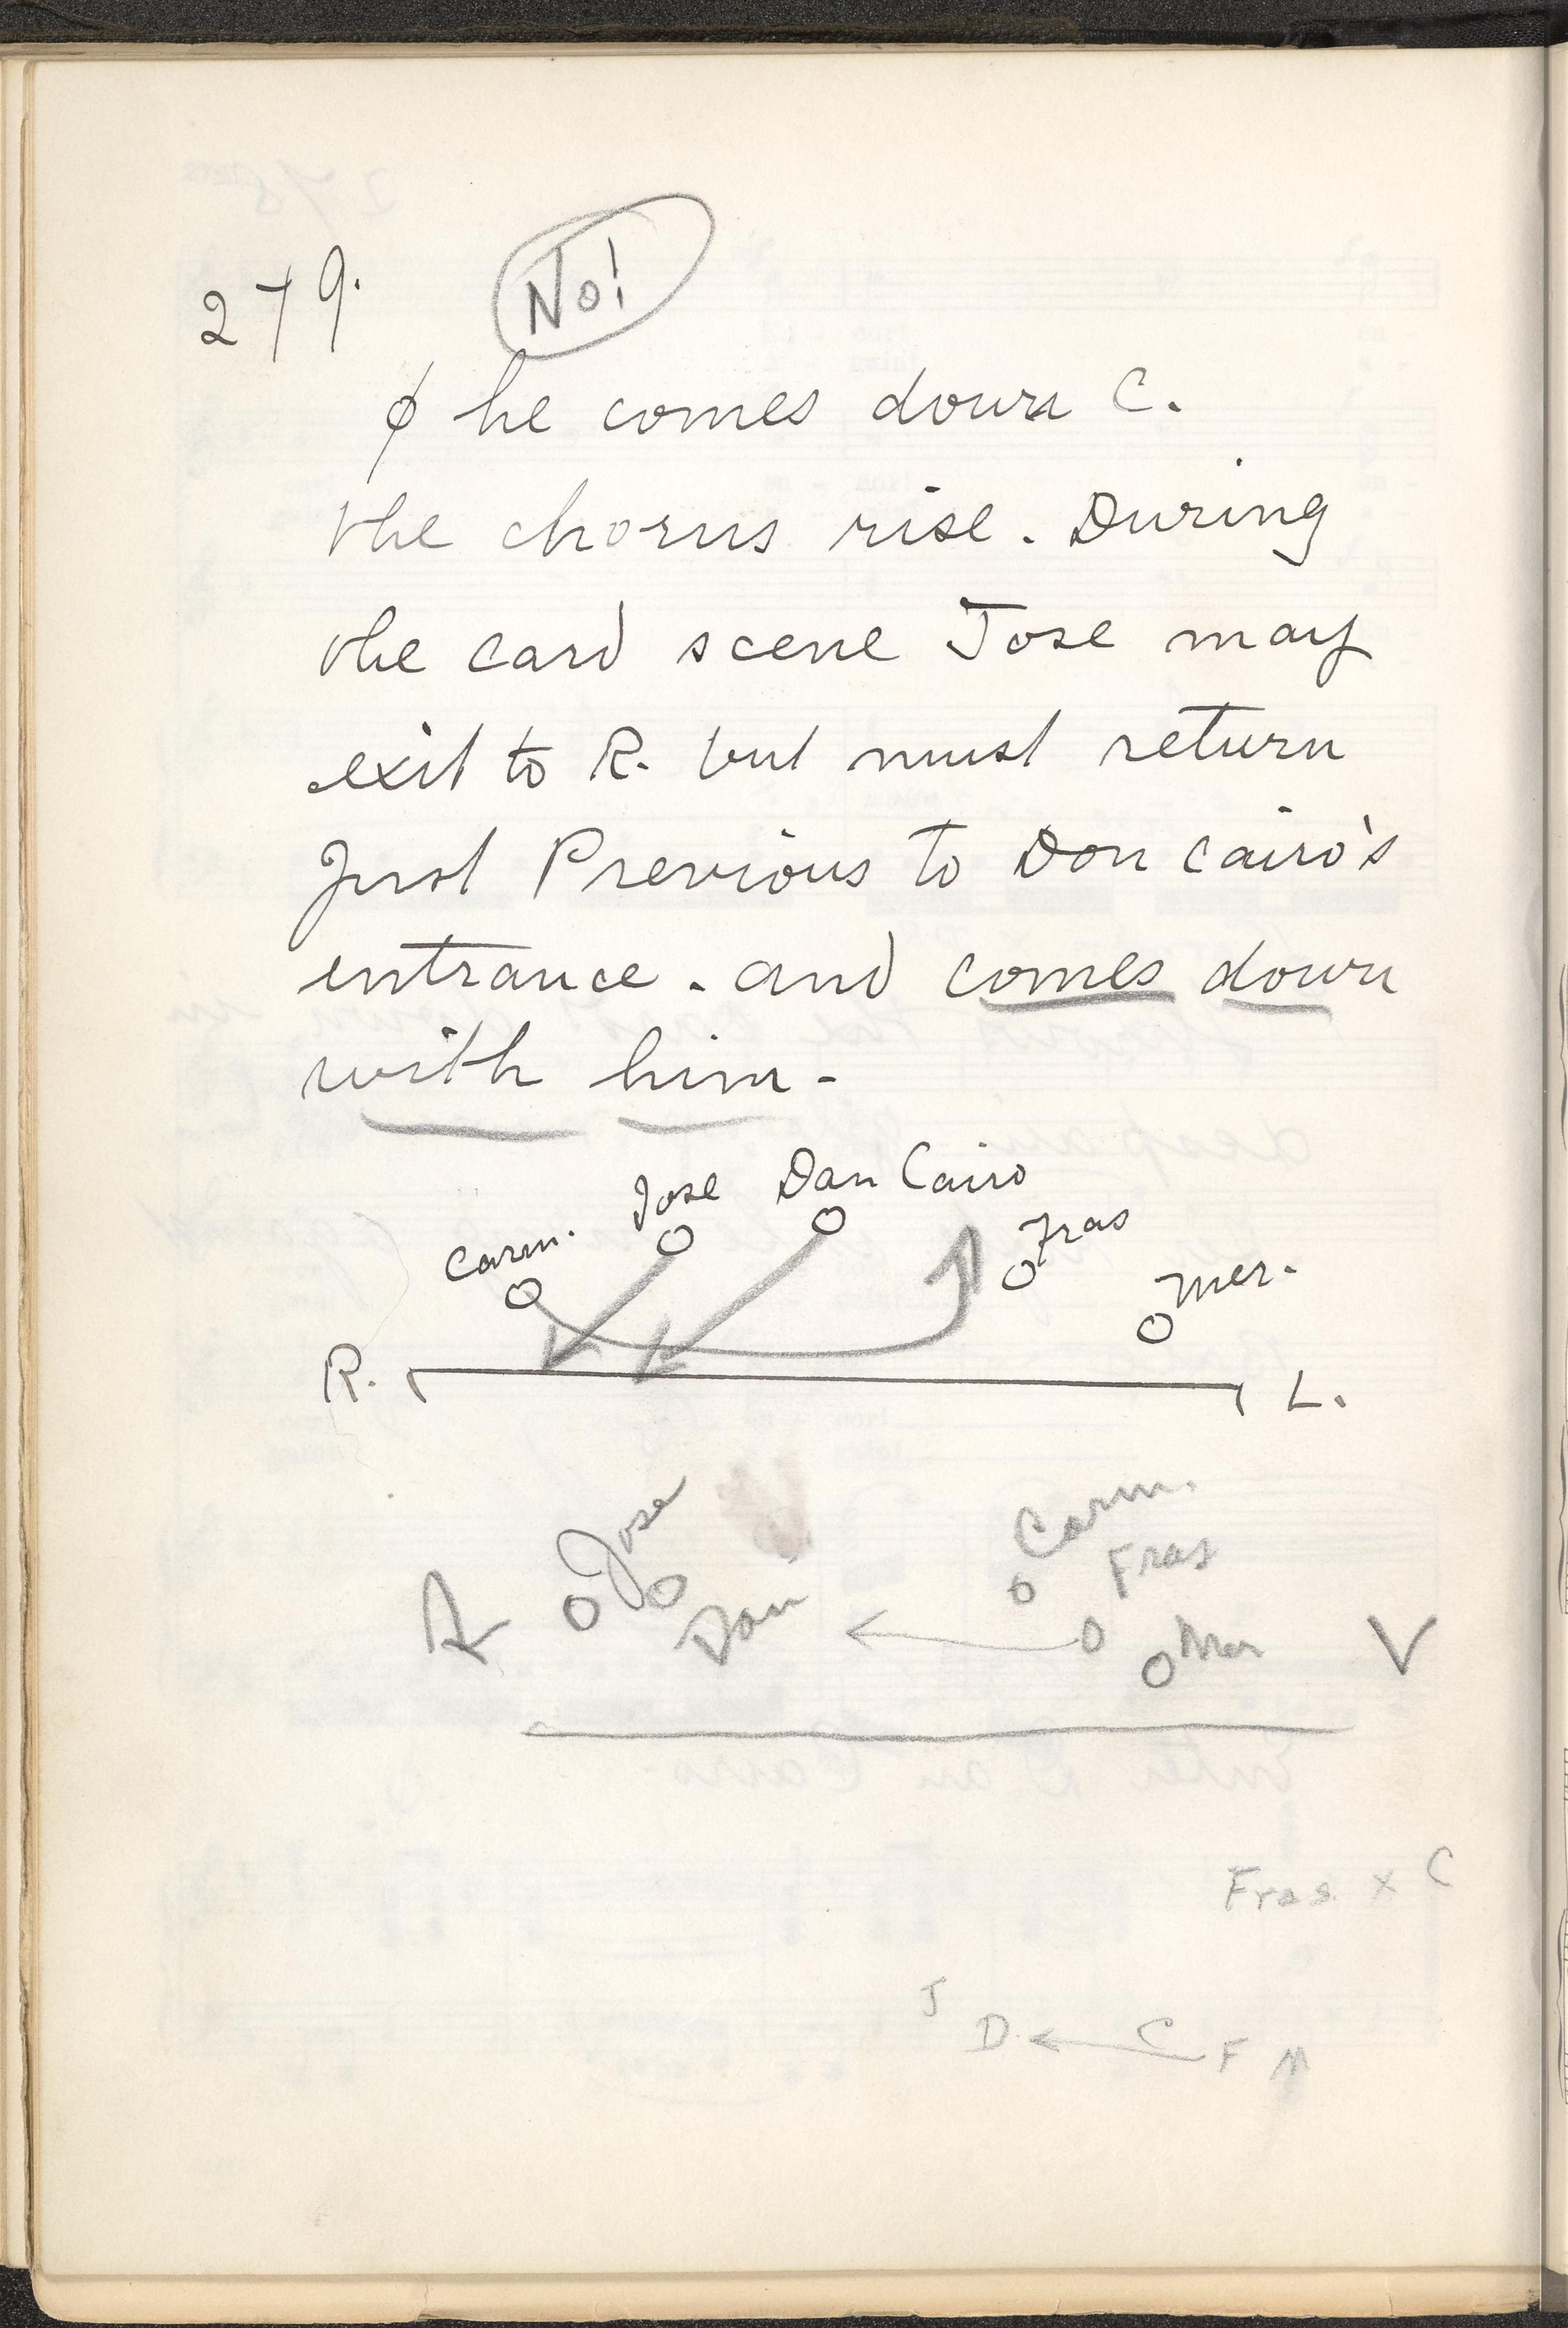 279.
No!
ϕ he comes down C.
the chorus rise. During
the card scene Jose may
exit to R. but must return
Just Previous to Don Cairo's
entrance. and comes down
with him -
Carm. Jose Dan Cairo Fras Mer.
R. L.
Jose Dan Carm. Fras Mer
Fras. x C
J D C F M